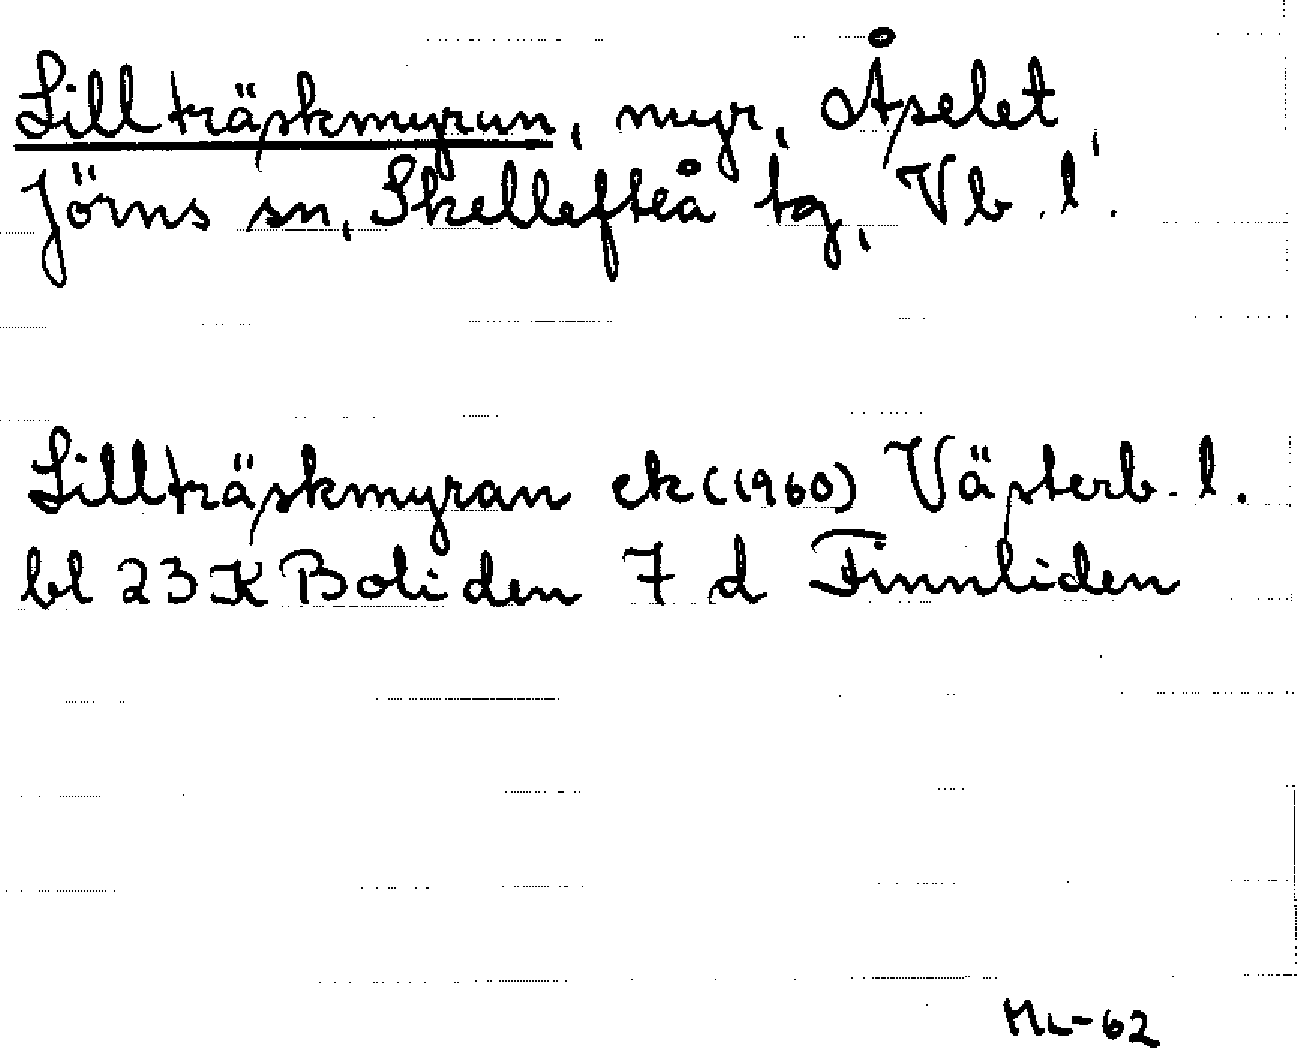 Lillträskmyran, myr, Åselet,
Jörns sn, Skellefteå tg, Vb. l.
Lillträskmyran ek (1960) Västerb. l.
bl 23 K Boliden 7 d Finnliden
ML-62